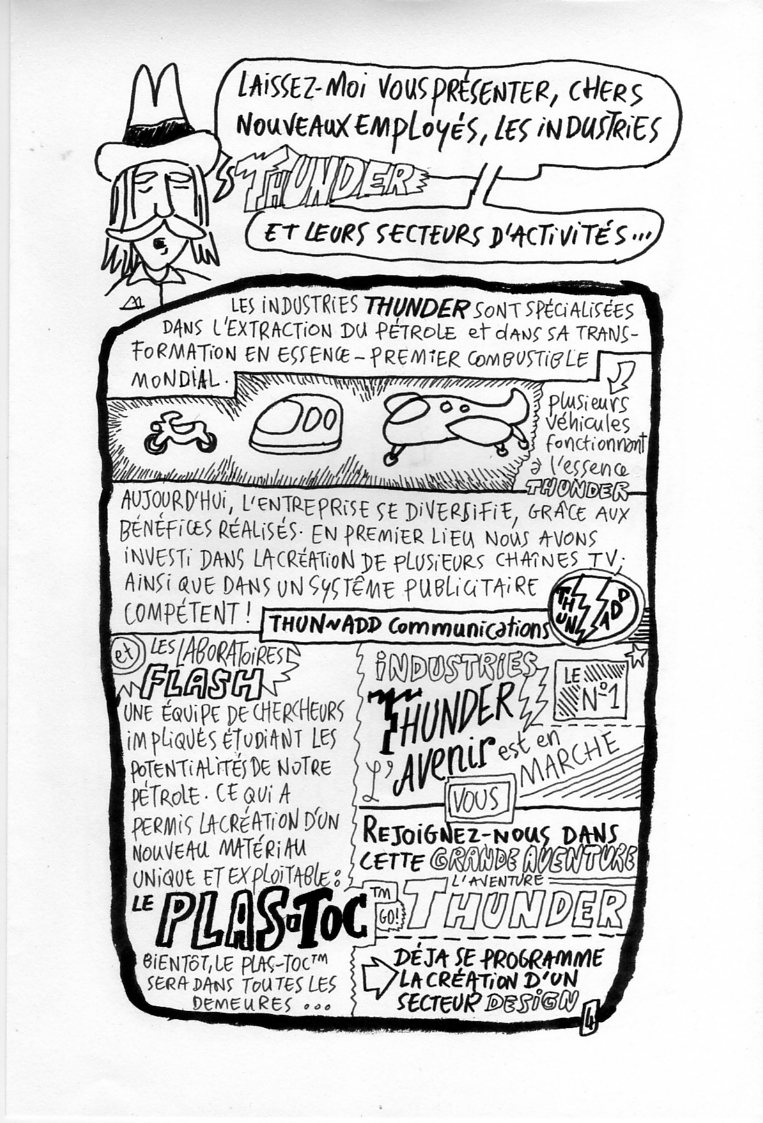 LAISSEZ-MOI VOUS PRÉSENTER, CHERS
NOUVEAUX EMPLOYÉS, LES INDUSTRIES
THUNDER
ET LEURS SECTEURS D'ACTIVITÉS...
LES INDUSTRIES THUNDER SONT SPÉCIALISÉES
DANS L'EXTRACTION DU PÉTROLE et dANS SA TRANS-
FORMATION EN ESSENCE - PREMIER COMBUSTIBLE
MONDIAL.
plusieurs
véhicules
fonctionnant
à l'essence
THUNDER
AUJOURD'HUI, L'ENTREPRISE SE DIVERSIFIE, GRÂCE AUX
BÉNÉFICES RÉALISÉS. EN PREMIER LIEU NOUS AVONS
INVESTI DANS LA CRÉATION DE PLUSIEURS CHAÎNES TV;
AINSI QUE DANS UN SYSTÊME PUBLICITAIRE
COMPÉTENT!
THUN~ADD Communications
THUN ADD
et LES LABORATOIRES
FLASH
UNE ÉQUIPE DE CHERCHEURS
IMPLIQUÉS ÉTUDIANT LES
POTENTIALITÉS DE NOTRE
PÉTROLE. CE QUI A
PERMIS LA CRÉATION D'UN
NOUVEAU MATÉRIAU
UNIQUE ET EXPLOITABLE:
LE PLAS-TOC TM
BIENTÔT, LE PLAS-TOC™
SERA DANS TOUTES LES
DEMEURES ...
INDUSTRIES
THUNDER
LE
N°1
L'AVENIR est en
MARCHE
VOUS
REJOIGNEZ-NOUS DANS
CETTE GRANDE AVENTURE
L'AVENTURE
GO! THUNDER
DÉJA SE PROGRAMME
LA CRÉATION D'UN
SECTEUR DESIGN
4